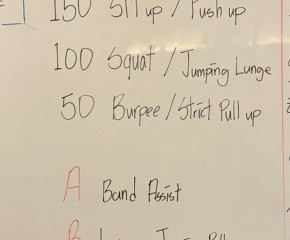 150 Sit up / Push up
100 Squat / Jumping Lunge
50 Burpee / Strict Pull up
A Band Assist
B